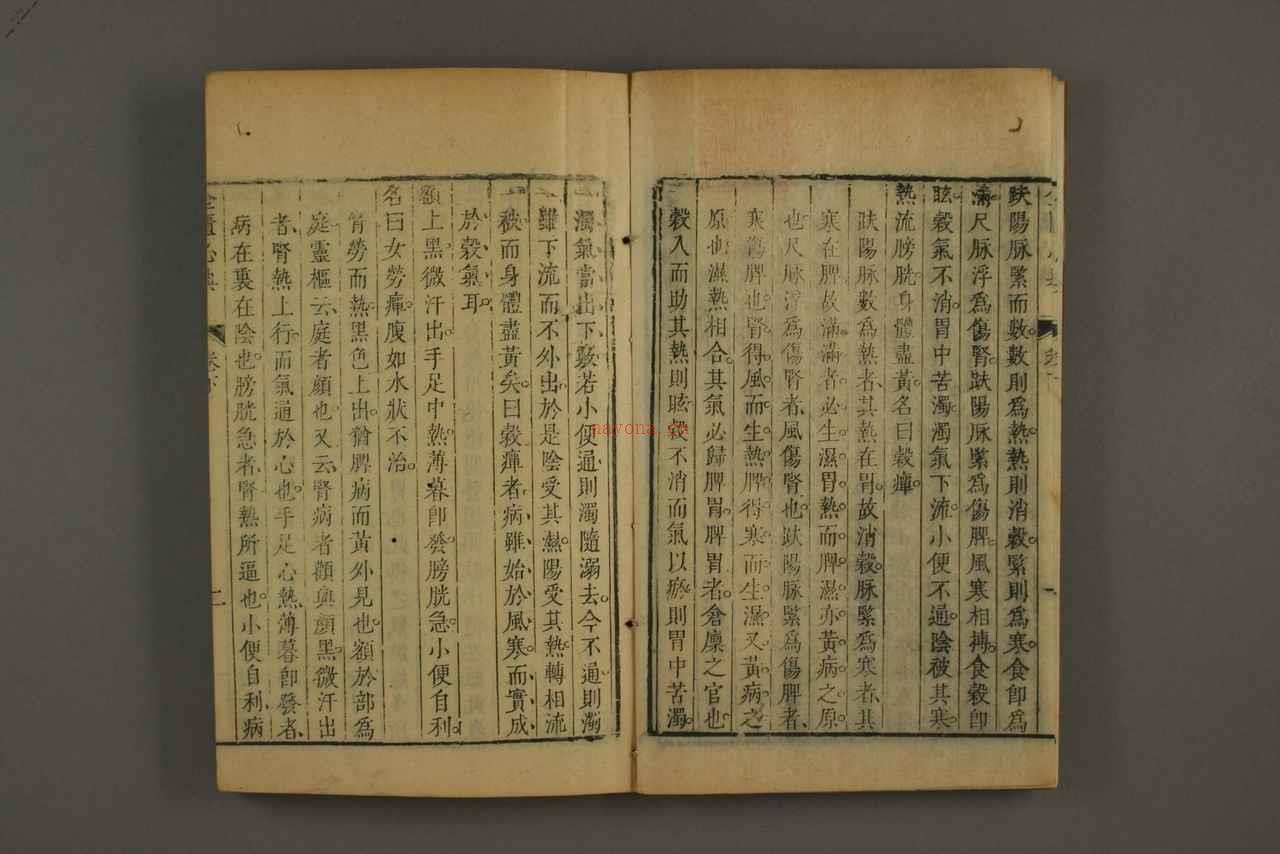 趺陽脈緊而數。數則爲熱。熱則消穀。緊則爲寒。食即爲
滿。尺脈浮爲傷腎。趺陽脈緊爲傷脾。風寒相搏。食穀即
眩。穀氣不消。胃中苦濁。濁氣下流。小便不通。陰被其寒。
熱流膀胱。身體盡黃。名曰穀癉。
趺陽脈數爲熱者、其熱在胃。故消穀。脈緊爲寒者、其
寒在脾。故滿。滿者必生濕。胃熱而脾濕。亦黃病之原
也。尺脈浮爲傷腎者、風傷腎也。趺陽脈緊爲傷脾者、
寒傷脾也。腎得風而生熱。脾得寒而生濕。又黃病之
原也。濕熱相合。其氣必歸脾胃。脾胃者。倉廩之官也。
穀入而助其熱則眩。穀不消而氣以瘀。則胃中苦濁。
濁氣當出下竅。若小便通。則濁隨溺去。今不通。則濁
雖下流而不外出。於是陰受其濕。陽受其熱。轉相流
被而身體盡黃矣。曰穀癉者、病雖始於風寒。而實成
於穀氣耳。
額上黑。微汗出。手足中熱。薄暮即發。膀胱急。小便自利。
名曰女勞癉。腹如水狀。不治。
腎勞而熱。黑色上出。猶脾病而黃外見也。額於部爲
庭。靈樞云、庭者顔也。又云、腎病者顴與顔黑。微汗出
者、腎熱上行。而氣通於心也。手足心熱。薄暮即發者、
病在裏在陰也。膀胱急者、腎熱所逼也。小便自利、病
金匱心典
卷下
二
nayona.cn